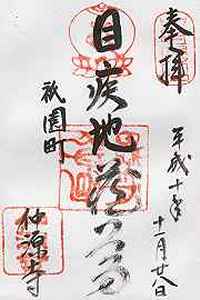 奉拝
平成十年
十一月廿八日
目疾地蔵尊
祇園町
仲源寺